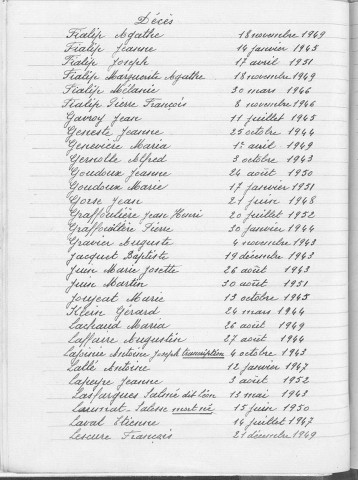 Décès
Fialip Agathe 18 novembre 1949
Fialip Jeanne 14 janvier 1943
Fialip Joseph 17 avril 1951
Fialip Marguerite Agathe 18 novembre 1949
Fialip Mélanie 30 mars 1946
Fialip Pierre François 8 novembre 1946
Gavroy Jean 11 juillet 1945
Geneste Jeanne 25 octobre 1944
Genevière Maria 1er avril 1949
Gernolle Alfred 3 octobre 1943
Goudoux Jeanne 24 août 1950
Goudoux Marie 17 janvier 1951
Gorse Jean 21 juin 1948
Graffoulière Jean Henri 20 juillet 1952
Graffouillère Pierre 30 janvier 1944
Gravier Auguste 4 novembre 1943
Jacquet Baptiste 19 décembre 1943
Juin Marie Josette 26 août 1943
Juin Martin 30 août 1951
Marie 13 octobre 1945
Klein Gérard 24 mars 1944
Lachaud Maria 26 août 1949
Laffarre Augustin 27 août 1944
Antoine Joseph transcription 4 octobre 1943
Antoine 12 janvier 1947
Lapeyre Jeanne 3 août 1952
Lasfargues dit Léon 13 mai 1943
mort né 15 juin 1950
Laval Etienne 14 juillet 1947
Lescure François 21 décembre 1949